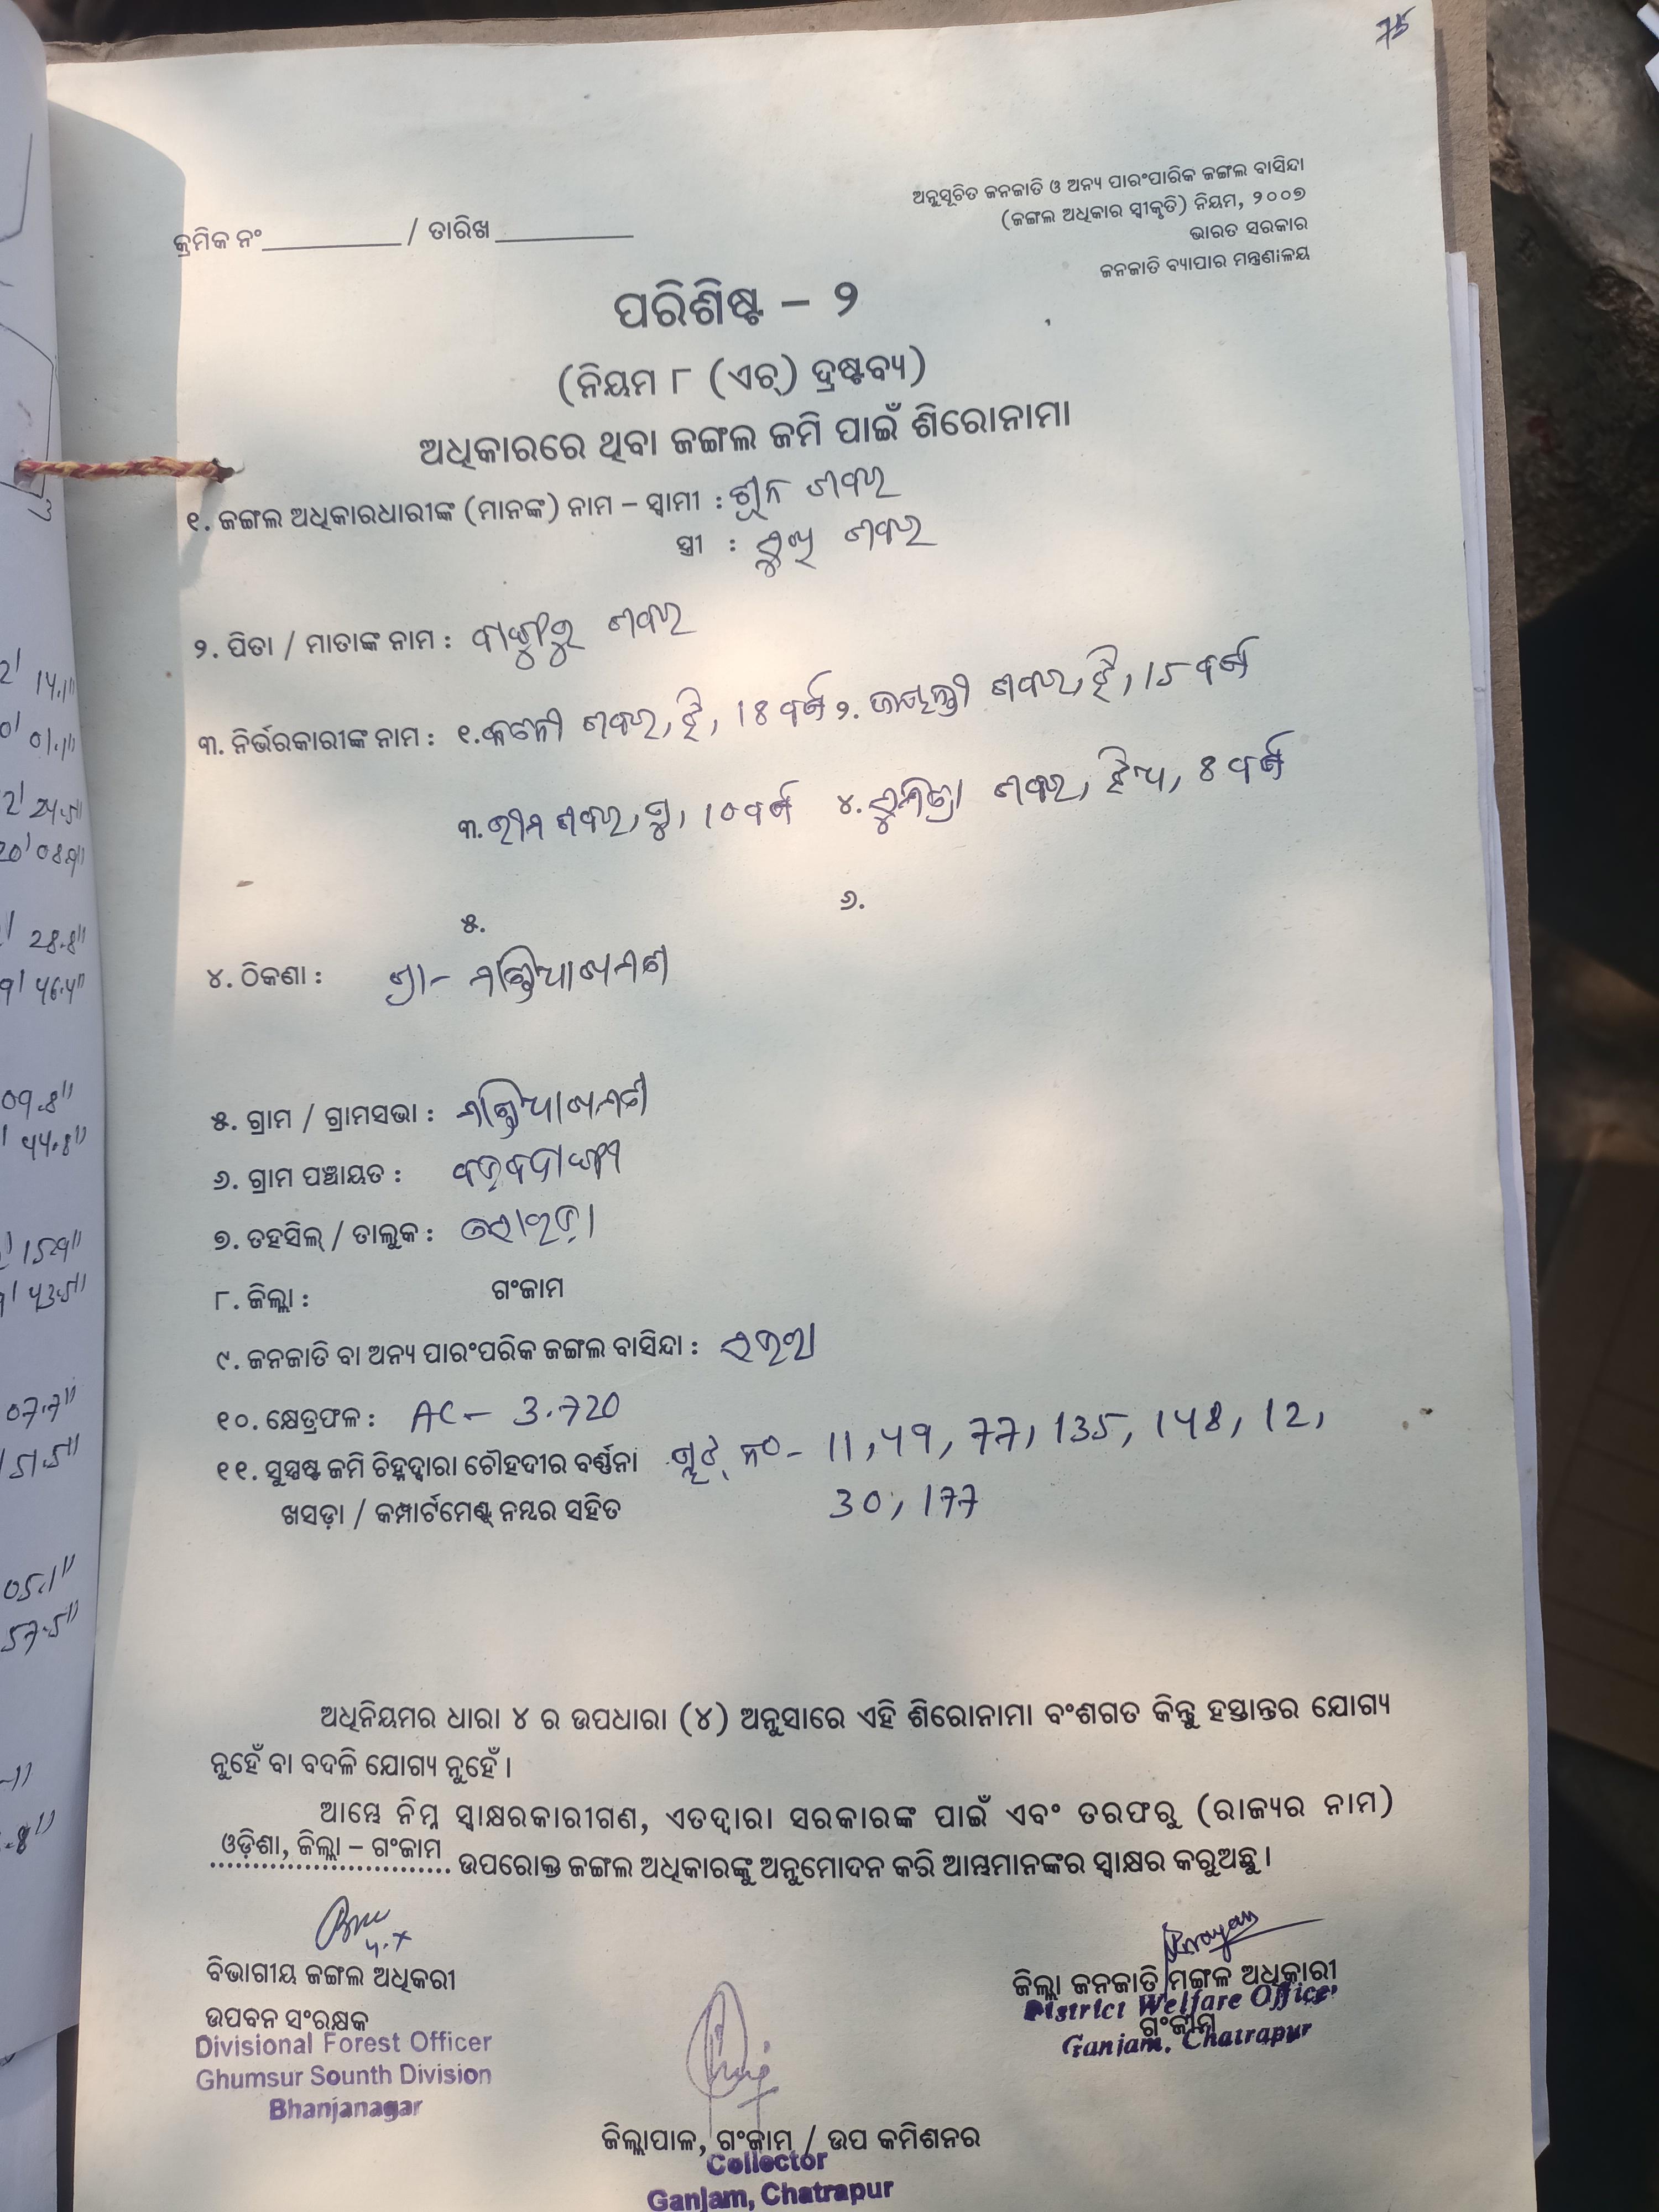 75
ଅନୁସୂଚିତ ଜନଜାତି ଓ ଅନ୍ୟ ପାରଂପାରିକ ଜଙ୍ଗଲ ବାସିନ୍ଦା
(ଜଙ୍ଗଲ ଅଧିକାର ସ୍ୱୀକୃତି) ନିୟମ, ୨୦୦୭
ଭାରତ ସରକାର
ଜନଜାତି ବ୍ୟାପାର ମନ୍ତ୍ରଣାଳୟ
କ୍ରମିକ ନଂ__________ / ତାରିଖ__________
ପରିଶିଷ୍ଟ – ୨
(ନିୟମ ୮ (ଏଚ୍) ଦ୍ରଷ୍ଟବ୍ୟ)
ଅଧିକାରରେ ଥିବା ଜଙ୍ଗଲ ଜମି ପାଇଁ ଶିରୋନାମା
୧. ଜଙ୍ଗଲ ଅଧିକାରଧାରୀଙ୍କ (ମାନଙ୍କ) ନାମ – ସ୍ୱାମୀ : ଶବର
ସ୍ତ୍ରୀ : ଶବର
୨. ପିତା / ମାତାଙ୍କ ନାମ : ଶବର
୩. ନିର୍ଭରକାରୀଙ୍କ ନାମ : ୧. ଶବର, ଝି, 18 ବର୍ଷ ୨. ଜୟନ୍ତୀ ଶବର, ଝି, 15 ବର୍ଷ
୩. ଶବର, ପୁ, 10 ବର୍ଷ ୪. ଶବର, ଝିଅ, 8 ବର୍ଷ
୫. ୬.
୪. ଠିକଣା : ଗ୍ରା-
୫. ଗ୍ରାମ / ଗ୍ରାମସଭା :
୬. ଗ୍ରାମ ପଞ୍ଚାୟତ :
୭. ତହସିଲ୍ / ତାଲୁକ : ସୋରଡ଼ା
୮. ଜିଲ୍ଲା : ଗଂଜାମ
୯. ଜନଜାତି ବା ଅନ୍ୟ ପାରଂପରିକ ଜଙ୍ଗଲ ବାସିନ୍ଦା :
୧୦. କ୍ଷେତ୍ରଫଳ : AC – 3.720
୧୧. ସୁସ୍ପଷ୍ଟ ଜମି ଚିହ୍ନଦ୍ୱାରା ଚୌହଦୀର ବର୍ଣ୍ଣନା ପ୍ଲଟ୍ ନଂ- 11, 49, 77, 135, 148, 12,
ଖସଡ଼ା / କମ୍ପାର୍ଟମେଣ୍ଟ୍ ନମ୍ବର ସହିତ 30, 177
ଅଧିନିୟମର ଧାରା ୪ ର ଉପଧାରା (୪) ଅନୁସାରେ ଏହି ଶିରୋନାମା ବଂଶଗତ କିନ୍ତୁ ହସ୍ତାନ୍ତର ଯୋଗ୍ୟ
ନୁହେଁ ବା ବଦଳି ଯୋଗ୍ୟ ନୁହେଁ ।
ଆମ୍ଭେ ନିମ୍ନ ସ୍ୱାକ୍ଷରକାରୀଗଣ, ଏତଦ୍ୱାରା ସରକାରଙ୍କ ପାଇଁ ଏବଂ ତରଫରୁ (ରାଜ୍ୟର ନାମ)
ଓଡ଼ିଶା, ଜିଲ୍ଲା – ଗଂଜାମ ଉପରୋକ୍ତ ଜଙ୍ଗଲ ଅଧିକାରଙ୍କୁ ଅନୁମୋଦନ କରି ଆମ୍ଭମାନଙ୍କର ସ୍ୱାକ୍ଷର କରୁଅଛୁ ।
ବିଭାଗୀୟ ଜଙ୍ଗଲ ଅଧିକରୀ
ଉପବନ ସଂରକ୍ଷକ
Divisional Forest Officer
Ghumsur Sounth Division
Bhanjanagar
ଜିଲ୍ଲା ଜନଜାତି ମଙ୍ଗଳ ଅଧିକାରୀ
District Welfare Officer
ଗଂଜାମ
Ganjam, Chatrapur
ଜିଲ୍ଲାପାଳ, ଗଂଜାମ / ଉପ କମିଶନର
Collector
Ganjam, Chatrapur